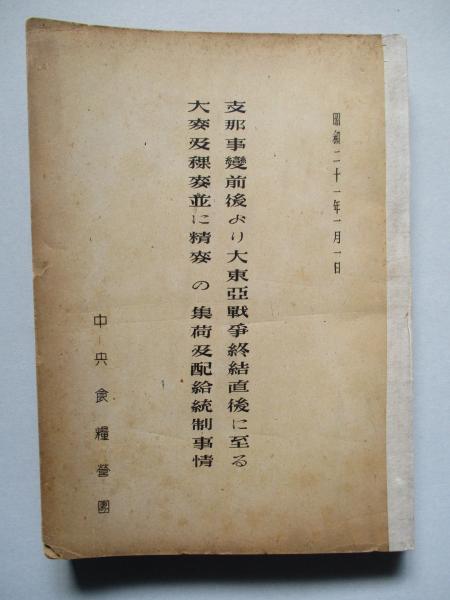 昭和二十一年一月一日
支那事變前後より大東亞戰爭終結直後に至る
大麥及稞麥並に精麥の集荷及配給統制事情
中央食糧營團